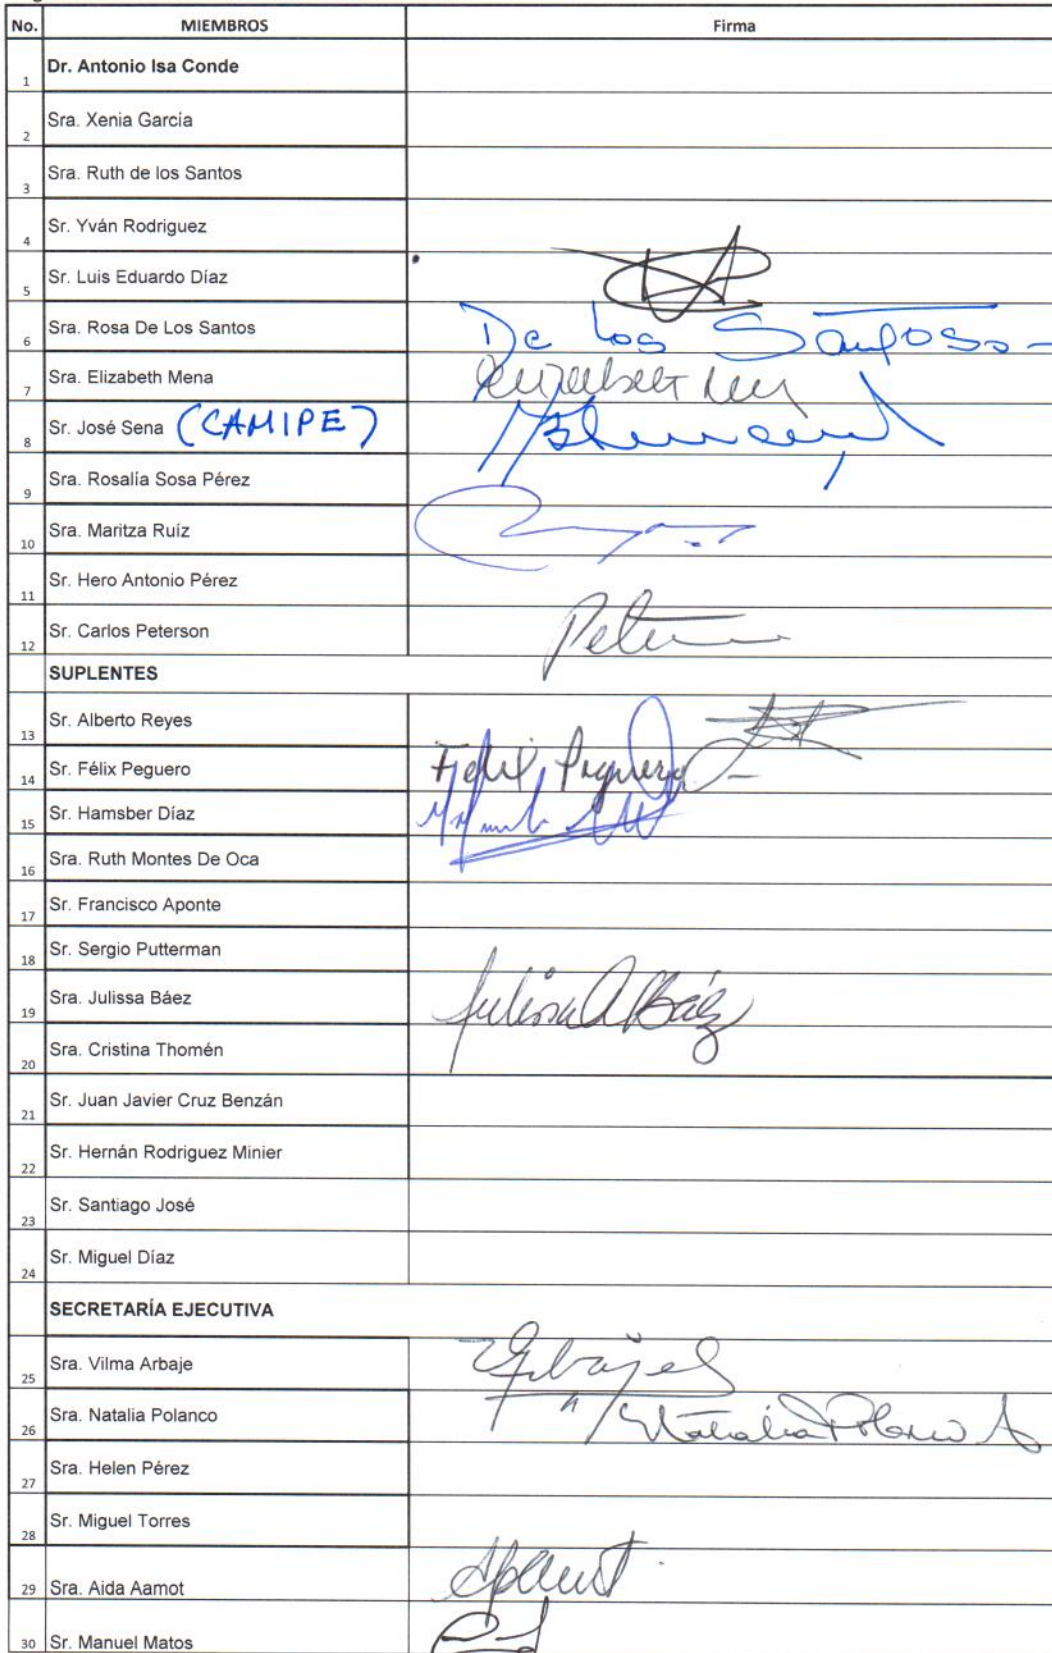 No. MIEMBROS Firma
1 Dr. Antonio Isa Conde
2 Sra. Xenia García
3 Sra. Ruth de los Santos
4 Sr. Yván Rodriguez
5 Sr. Luis Eduardo Díaz
6 Sra. Rosa De Los Santos De Los Santos
7 Sra. Elizabeth Mena
8 Sr. José Sena (CAMIPE)
9 Sra. Rosalía Sosa Pérez
10 Sra. Maritza Ruíz
11 Sr. Hero Antonio Pérez
12 Sr. Carlos Peterson
SUPLENTES
13 Sr. Alberto Reyes
14 Sr. Félix Peguero Felix Peguero
15 Sr. Hamsber Díaz
16 Sra. Ruth Montes De Oca
17 Sr. Francisco Aponte
18 Sr. Sergio Putterman
19 Sra. Julissa Báez Julissa A Báez
20 Sra. Cristina Thomén
21 Sr. Juan Javier Cruz Benzán
22 Sr. Hernán Rodriguez Minier
23 Sr. Santiago José
24 Sr. Miguel Díaz
SECRETARÍA EJECUTIVA
25 Sra. Vilma Arbaje
26 Sra. Natalia Polanco Natalia Polanco A
27 Sra. Helen Pérez
28 Sr. Miguel Torres
29 Sra. Aida Aamot
30 Sr. Manuel Matos